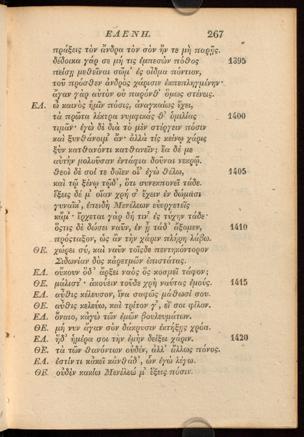 ΕΛΕΝΗ. 267
πράξεις τὸν ἄνδρα τὸν σὸν ἤν τε μὴ παρῇς.
δέδοικα γάρ σε μή τις ἐμπεσὼν πόθος 1395
πείσῃ μεθεῖναι σῶμ' ἐς οἶδμα πόντιον,
τοῦ πρόσθεν ἀνδρὸς χάρισιν ἐκπεπληγμένην·
ἄγαν γὰρ αὐτὸν οὐ παρόνθ' ὅμως στένεις.
ΕΛ. ὦ καινὸς ἡμῖν πόσις, ἀναγκαίως ἔχει,
τὰ πρῶτα λέκτρα νυμφικάς θ' ὁμιλίας 1400
τιμᾶν· ἐγὼ δὲ διὰ τὸ μὲν στέργειν πόσιν
καὶ ξυνθάνοιμ' ἄν· ἀλλὰ τίς κείνῳ χάρις
ξὺν κατθανόντι κατθανεῖν; ἔα δέ με
αὐτὴν μολοῦσαν ἐντάφια δοῦναι νεκρῷ.
θεοὶ δὲ σοί τε δοῖεν οἷ' ἐγὼ θέλω, 1405
καὶ τῷ ξένῳ τῷδ', ὅτι συνεκπονεῖ τάδε.
ἕξεις δέ μ' οἵαν χρή σ' ἔχειν ἐν δώμασι
γυναῖκ', ἐπειδὴ Μενέλεων εὐεργετεῖς
κἄμ'· ἔρχεται γὰρ δή τιν' ἐς τύχην τάδε·
ὅστις δὲ δώσει ναῦν, ἐν ᾗ τάδ' ἄξομεν, 1410
πρόσταξον, ὡς ἂν τὴν χάριν πλήρη λάβω.
ΘΕ. χώρει σύ, καὶ ναῦν τοῖσδε πεντηκόντορον
Σιδωνίαν δὸς κἀρετμῶν ἐπιστάτας.
ΕΛ. οὔκουν ὅδ' ἄρξει ναὸς ὃς κοσμεῖ τάφον;
ΘΕ. μάλιστ'· ἀκούειν τοῦδε χρὴ ναύτας ἐμούς. 1415
ΕΛ. αὖθις κέλευσον, ἵνα σαφῶς μάθωσί σου.
ΘΕ. αὖθις κελεύω, καὶ τρίτον γ', εἴ σοι φίλον.
ΕΛ. ὄναιο, κἀγὼ τῶν ἐμῶν βουλευμάτων.
ΘΕ. μή νυν ἄγαν σὸν δάκρυσιν ἐκτήξῃς χρόα.
ΕΛ. ἥδ' ἡμέρα σοι τὴν ἐμὴν δείξει χάριν. 1420
ΘΕ. τὰ τῶν θανόντων οὐδέν, ἀλλ' ἄλλως πόνος.
ΕΛ. ἔστιν τι κἀκεῖ κἀνθάδ', ὧν ἐγὼ λέγω.
ΘΕ. οὐδὲν κακίω Μενέλεώ μ' ἕξεις πόσιν.